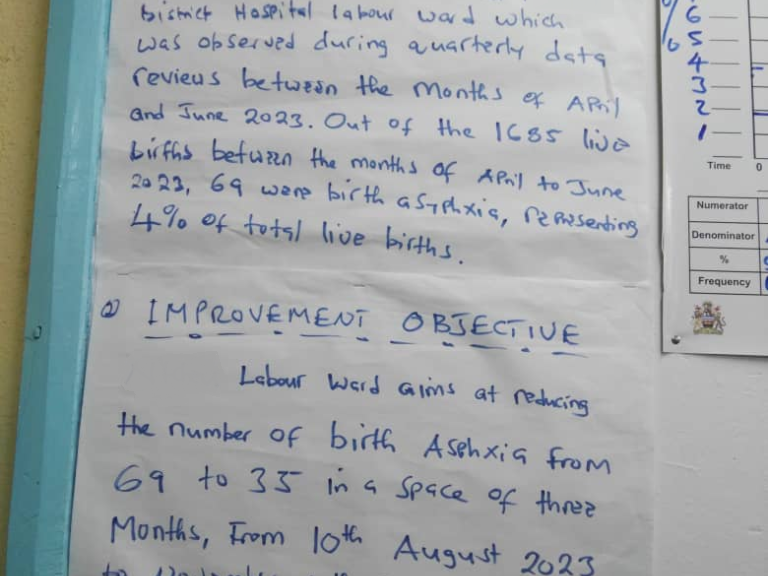 District Hospital labour ward which
was observed during quarterly data
reviews between the months of April
and June 2023. Out of the 1685 live
births between the months of April to June
2023, 69 were birth asyphxia, representing
4% of total live births.
IMPROVEMENT OBJECTIVE
Labour Ward aims at reducing
the number of birth Asphxia from
69 to 35 in a space of three
Months, From 10th August 2023
to
6
5
4
3
2
1
Time 0
Numerator
Denominator
%
Frequency